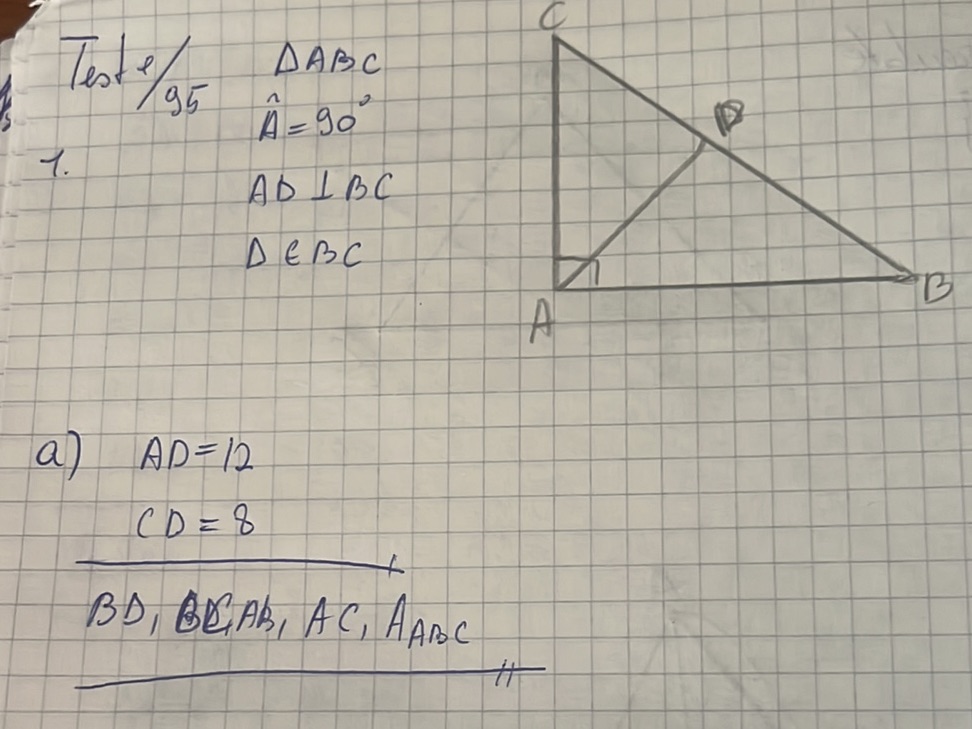 Teste/95
ΔABC
Â = 90°
1.
AD ⊥ BC
D ∈ BC
C
D
A
B
a) AD = 12
CD = 8
BD, BC, AB, AC, A_ABC